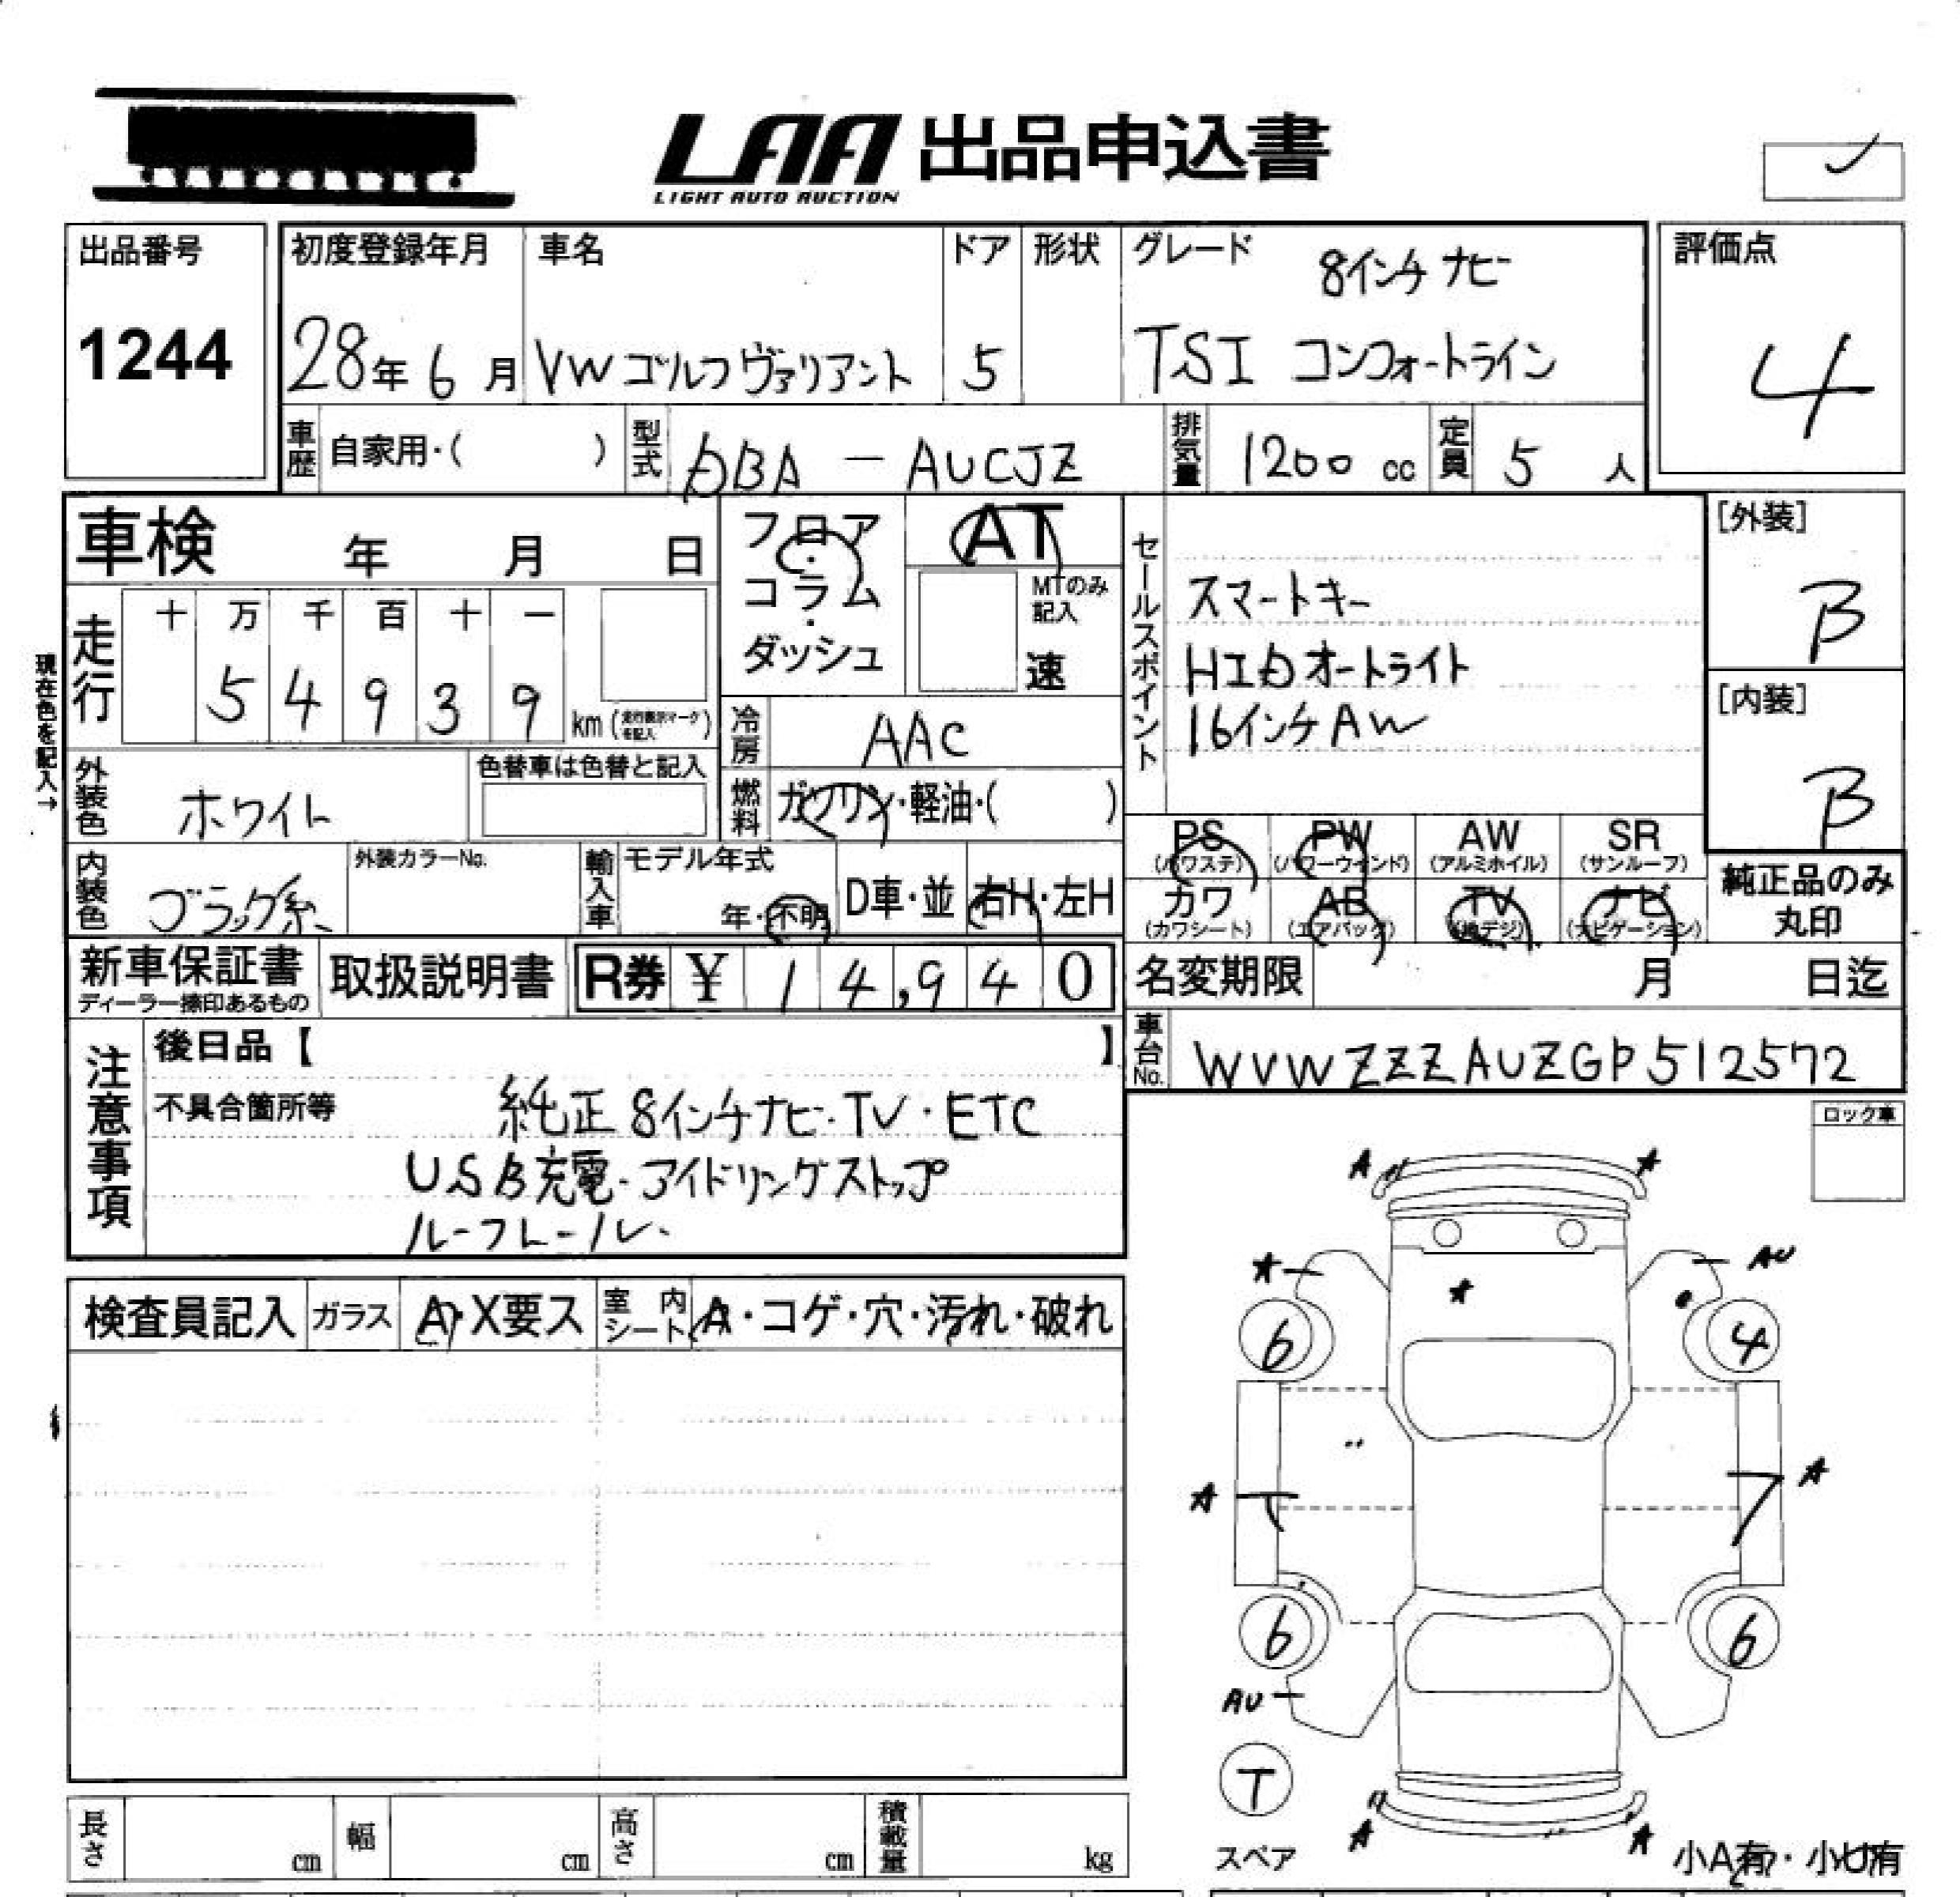 LAA 出品申込書
LIGHT AUTO AUCTION
出品番号
1244
初度登録年月
28年6月
車名
VWゴルフヴァリアント
ドア
5
形状
グレード
8インチナビ
TSI コンフォートライン
評価点
4
車歴 自家用・( )
型式 DBA - AUCJZ
排気量 1200 cc
定員 5 人
車検 年 月 日
フロア・コラム・ダッシュ
AT
MTのみ記入
速
セールスポイント
スマートキー
HIDオートライト
16インチAW
[外装]
B
[内装]
B
現在色を記入→
走行
十 万 千 百 十 一
5 4 9 3 9 km (走行表示マークを記入)
冷房 AAC
燃料 ガソリン・軽油・( )
外装色 ホワイト
色替車は色替と記入
内装色 ブラック系
外装カラーNo.
輸入車 モデル年式
年・不明
D車・並
右H・左H
PS (パワステ)
PW (パワーウィンド)
AW (アルミホイル)
SR (サンルーフ)
カワ (カワシート)
AB (エアバッグ)
TV (地デジ)
ナビ (ナビゲーション)
純正品のみ丸印
新車保証書
ディーラー捺印あるもの
取扱説明書
R券 ¥ 14,940
名変期限 月 日迄
車台No. WVWZZZAUZGP512572
注意事項
後日品【 】
不具合箇所等
純正8インチナビ・TV・ETC
USB充電・アイドリングストップ
ルーフレール・
ロック車
検査員記入
ガラス A・X要ス
室内シート A・コゲ・穴・汚れ・破れ
A
A
A
AU
A
6
4
A
A
6
6
AU
T
スペア
A
A
小A有・小U有
長さ cm
幅 cm
高さ cm
積載量 kg